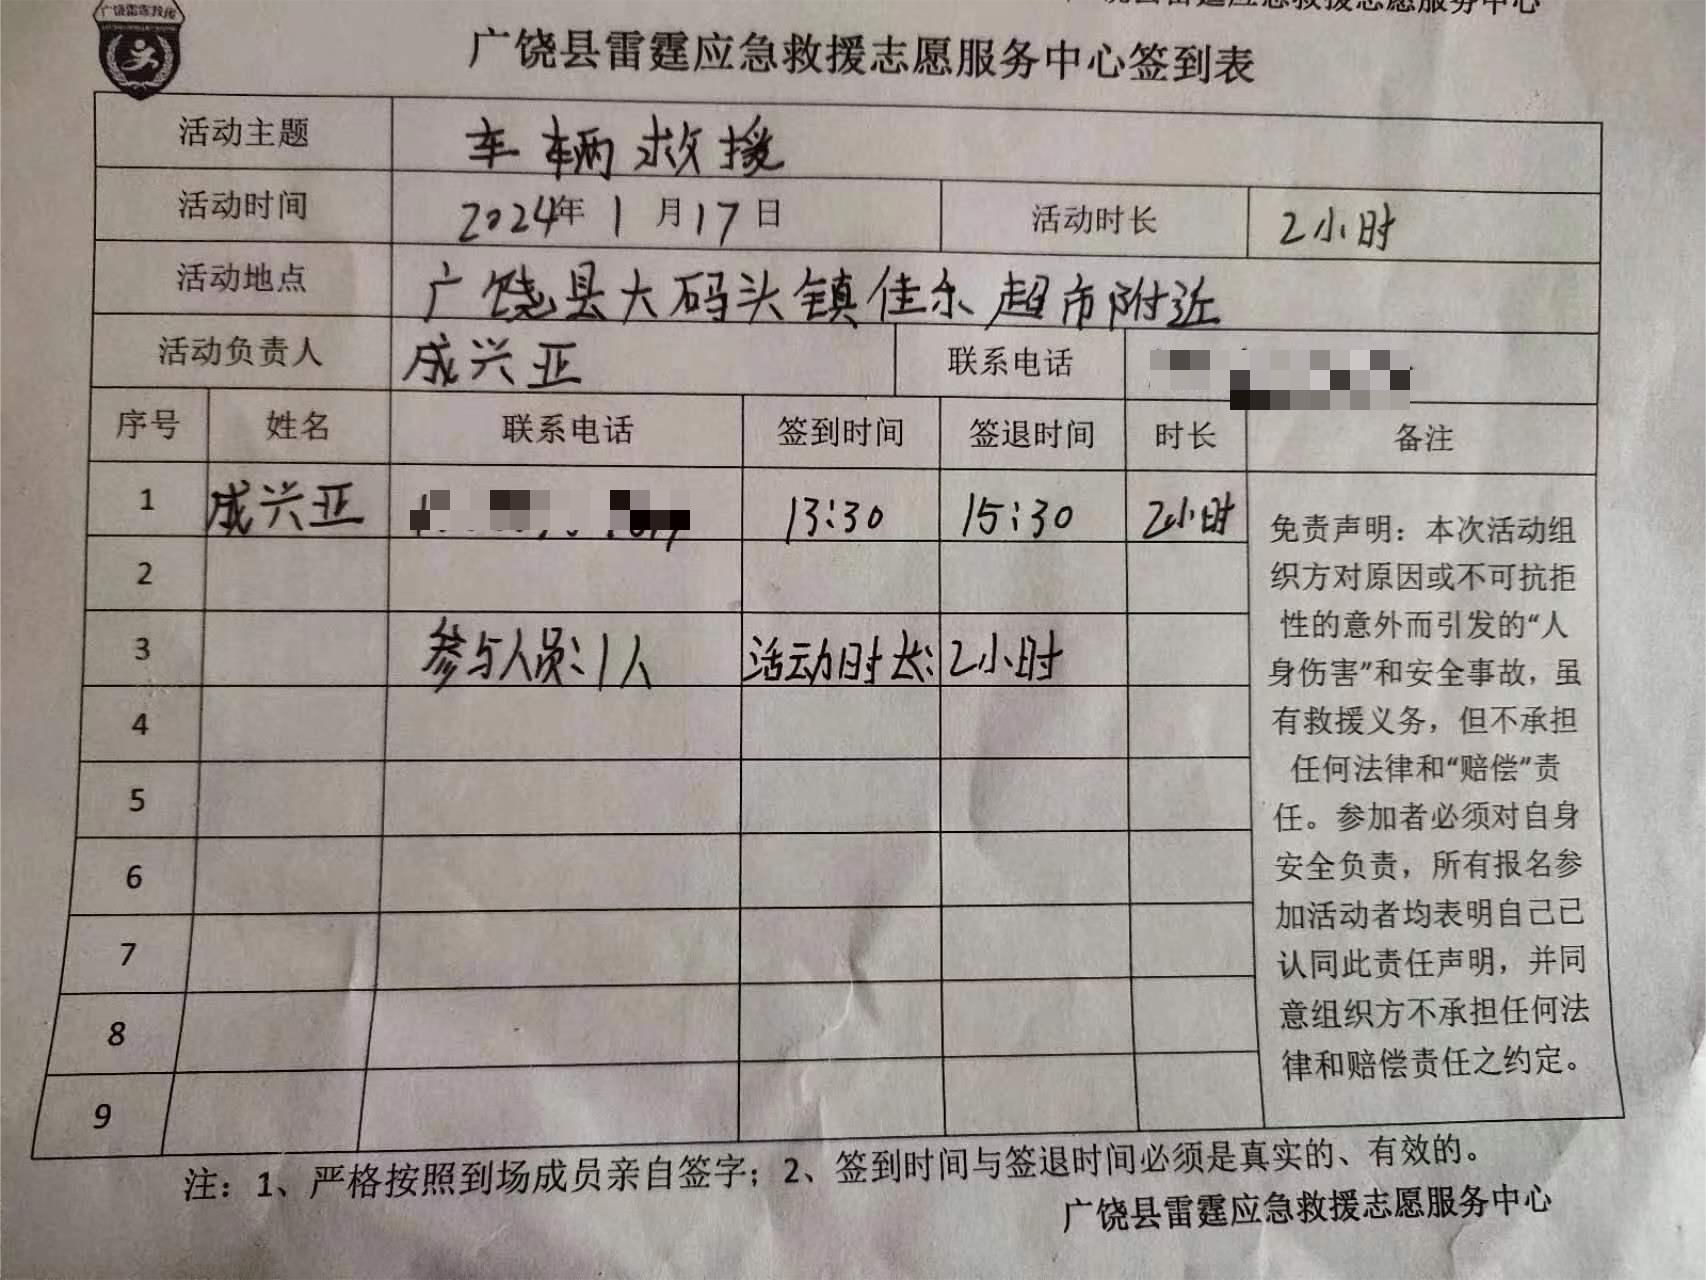 广饶雷霆救援
广饶县雷霆应急救援志愿服务中心
广饶县雷霆应急救援志愿服务中心签到表
活动主题 车辆救援
活动时间 2024年1月17日 活动时长 2小时
活动地点 广饶县大码头镇佳乐超市附近
活动负责人 成兴亚 联系电话
序号 姓名 联系电话 签到时间 签退时间 时长 备注
1 成兴亚 13:30 15:30 2小时
2
3 参与人员:1人 活动时长:2小时
4
5
6
7
8
9
免责声明：本次活动组
织方对原因或不可抗拒
性的意外而引发的“人
身伤害”和安全事故，虽
有救援义务，但不承担
任何法律和“赔偿”责
任。参加者必须对自身
安全负责，所有报名参
加活动者均表明自己已
认同此责任声明，并同
意组织方不承担任何法
律和赔偿责任之约定。
注：1、严格按照到场成员亲自签字；2、签到时间与签退时间必须是真实的、有效的。
广饶县雷霆应急救援志愿服务中心